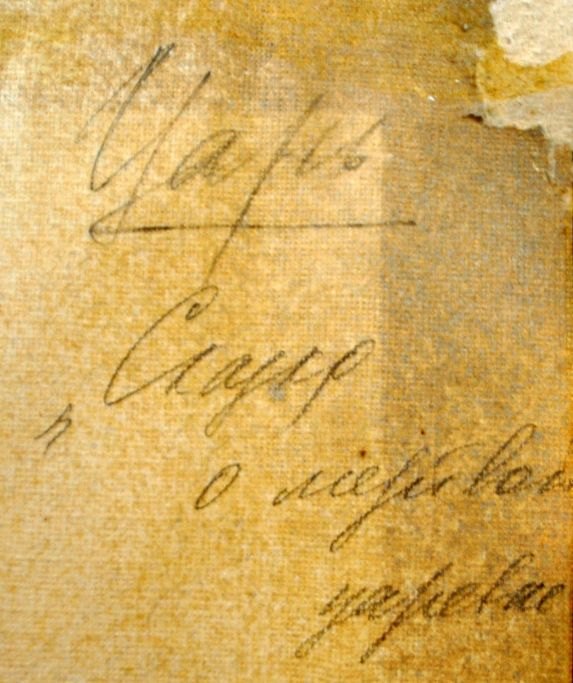 Царь
„Сказка
о мертвой
царевне